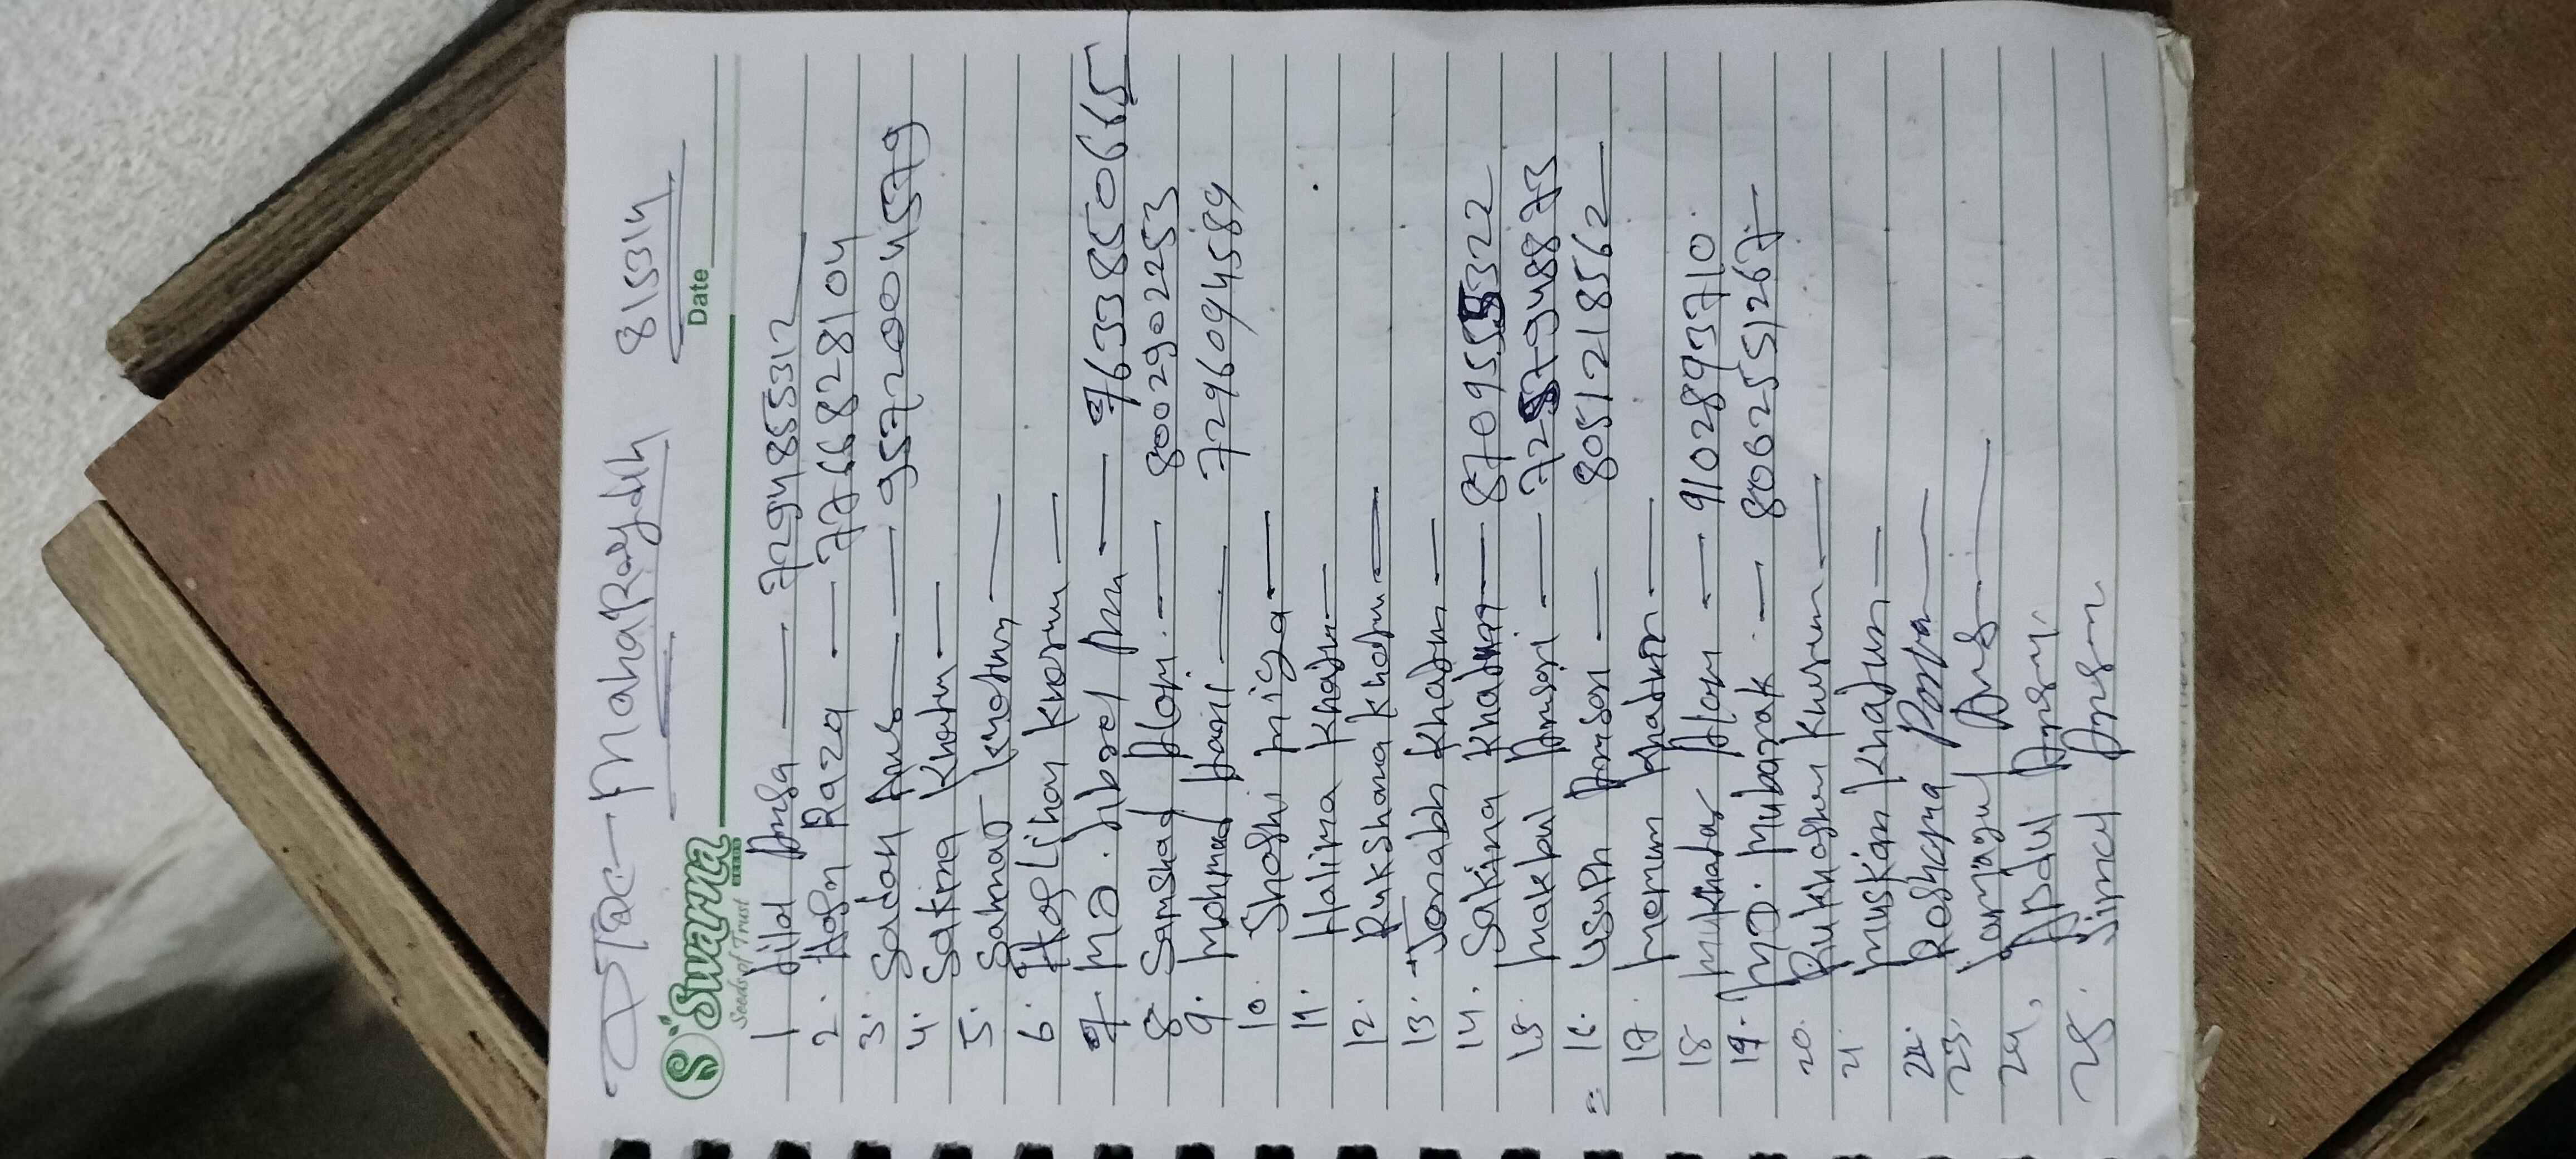 MahaRaydih 815314
Swarna
SEEDS
Seeds of Trust
Date
1 Jilal Ansa 7294855312
2. Hasn Raza 7766828104
3. Sadan Ans 9572004579
4. Sakina Khatun
5. Salma Khatun
6. Khatun
7. MD. Jibrel Ans 9633850665
8. Samshad Alam. 8002902253
9. Mohmad 7296094589
10. Shaghi miya
11. Halima Khatun
12. Rukshana khatun
13. Jenabh Khatun
14. Sakina Khatun 8709555322
15. makbul Ansari 7257948873
16. Usuph Ansari 8051218562
17. momun khatun
18. mukhatar Alam 9102893710.
19. MD. Mubarak 8062551267
20. Khatun
21. muskan khatun
22. Roshana
23. Ans
24. Abdul Ansari.
25. Ansari